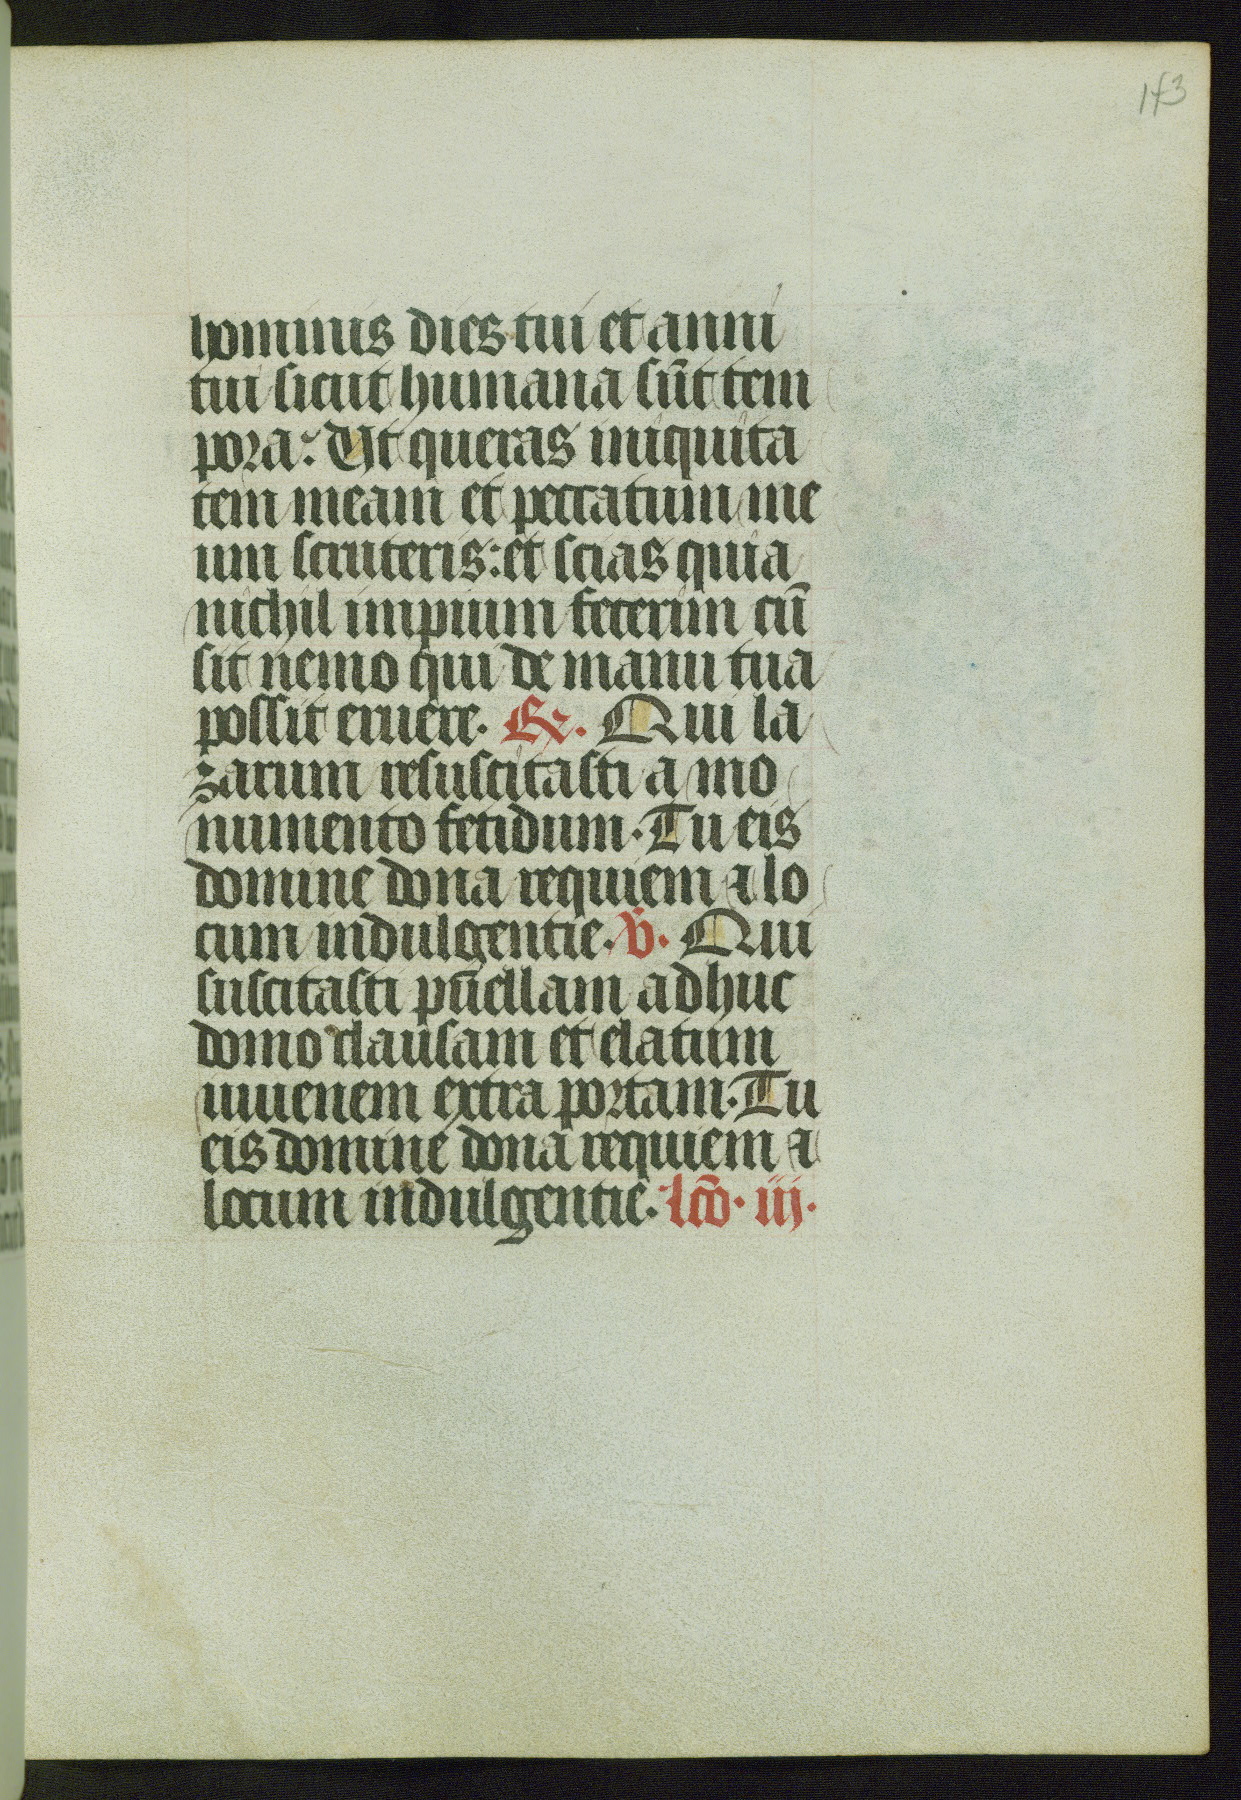 173
hominis dies tui et anni
tui sicut humana sūt tem
pora: Ut queras iniquita
tem meam et peccatum me
um scruteris: et scias quia
nichil impium fecerim cū
sit nemo qui de manu tua
possit eruere. ℟. Qui la
zarum resuscitasti a mo
numento fetidum. Tu eis
domine dona requiem ⁊ lo
cum indulgentie. ℣. Qui
suscitasti puellam adhuc
domo clausam et elatum
iuuenem extra portam. Tu
eis domine dona requiem ⁊
locum indulgentie. lcō. iij.